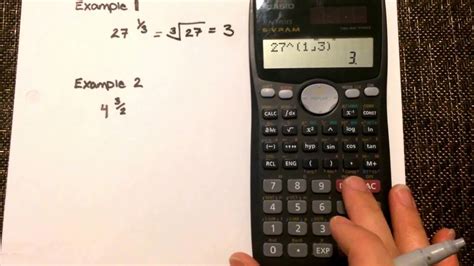 Example 1
27^1/3 = ∛27 = 3
Example 2
4^3/2
CASIO
S-V.P.A.M.
27^(1⌟3)
3.
CALC
x²
^
log
ln
(-)
hyp
sin
cos
tan
RCL
ENG
(
)
M+
7 8 9 AC
4 5 6
1 2 3
0